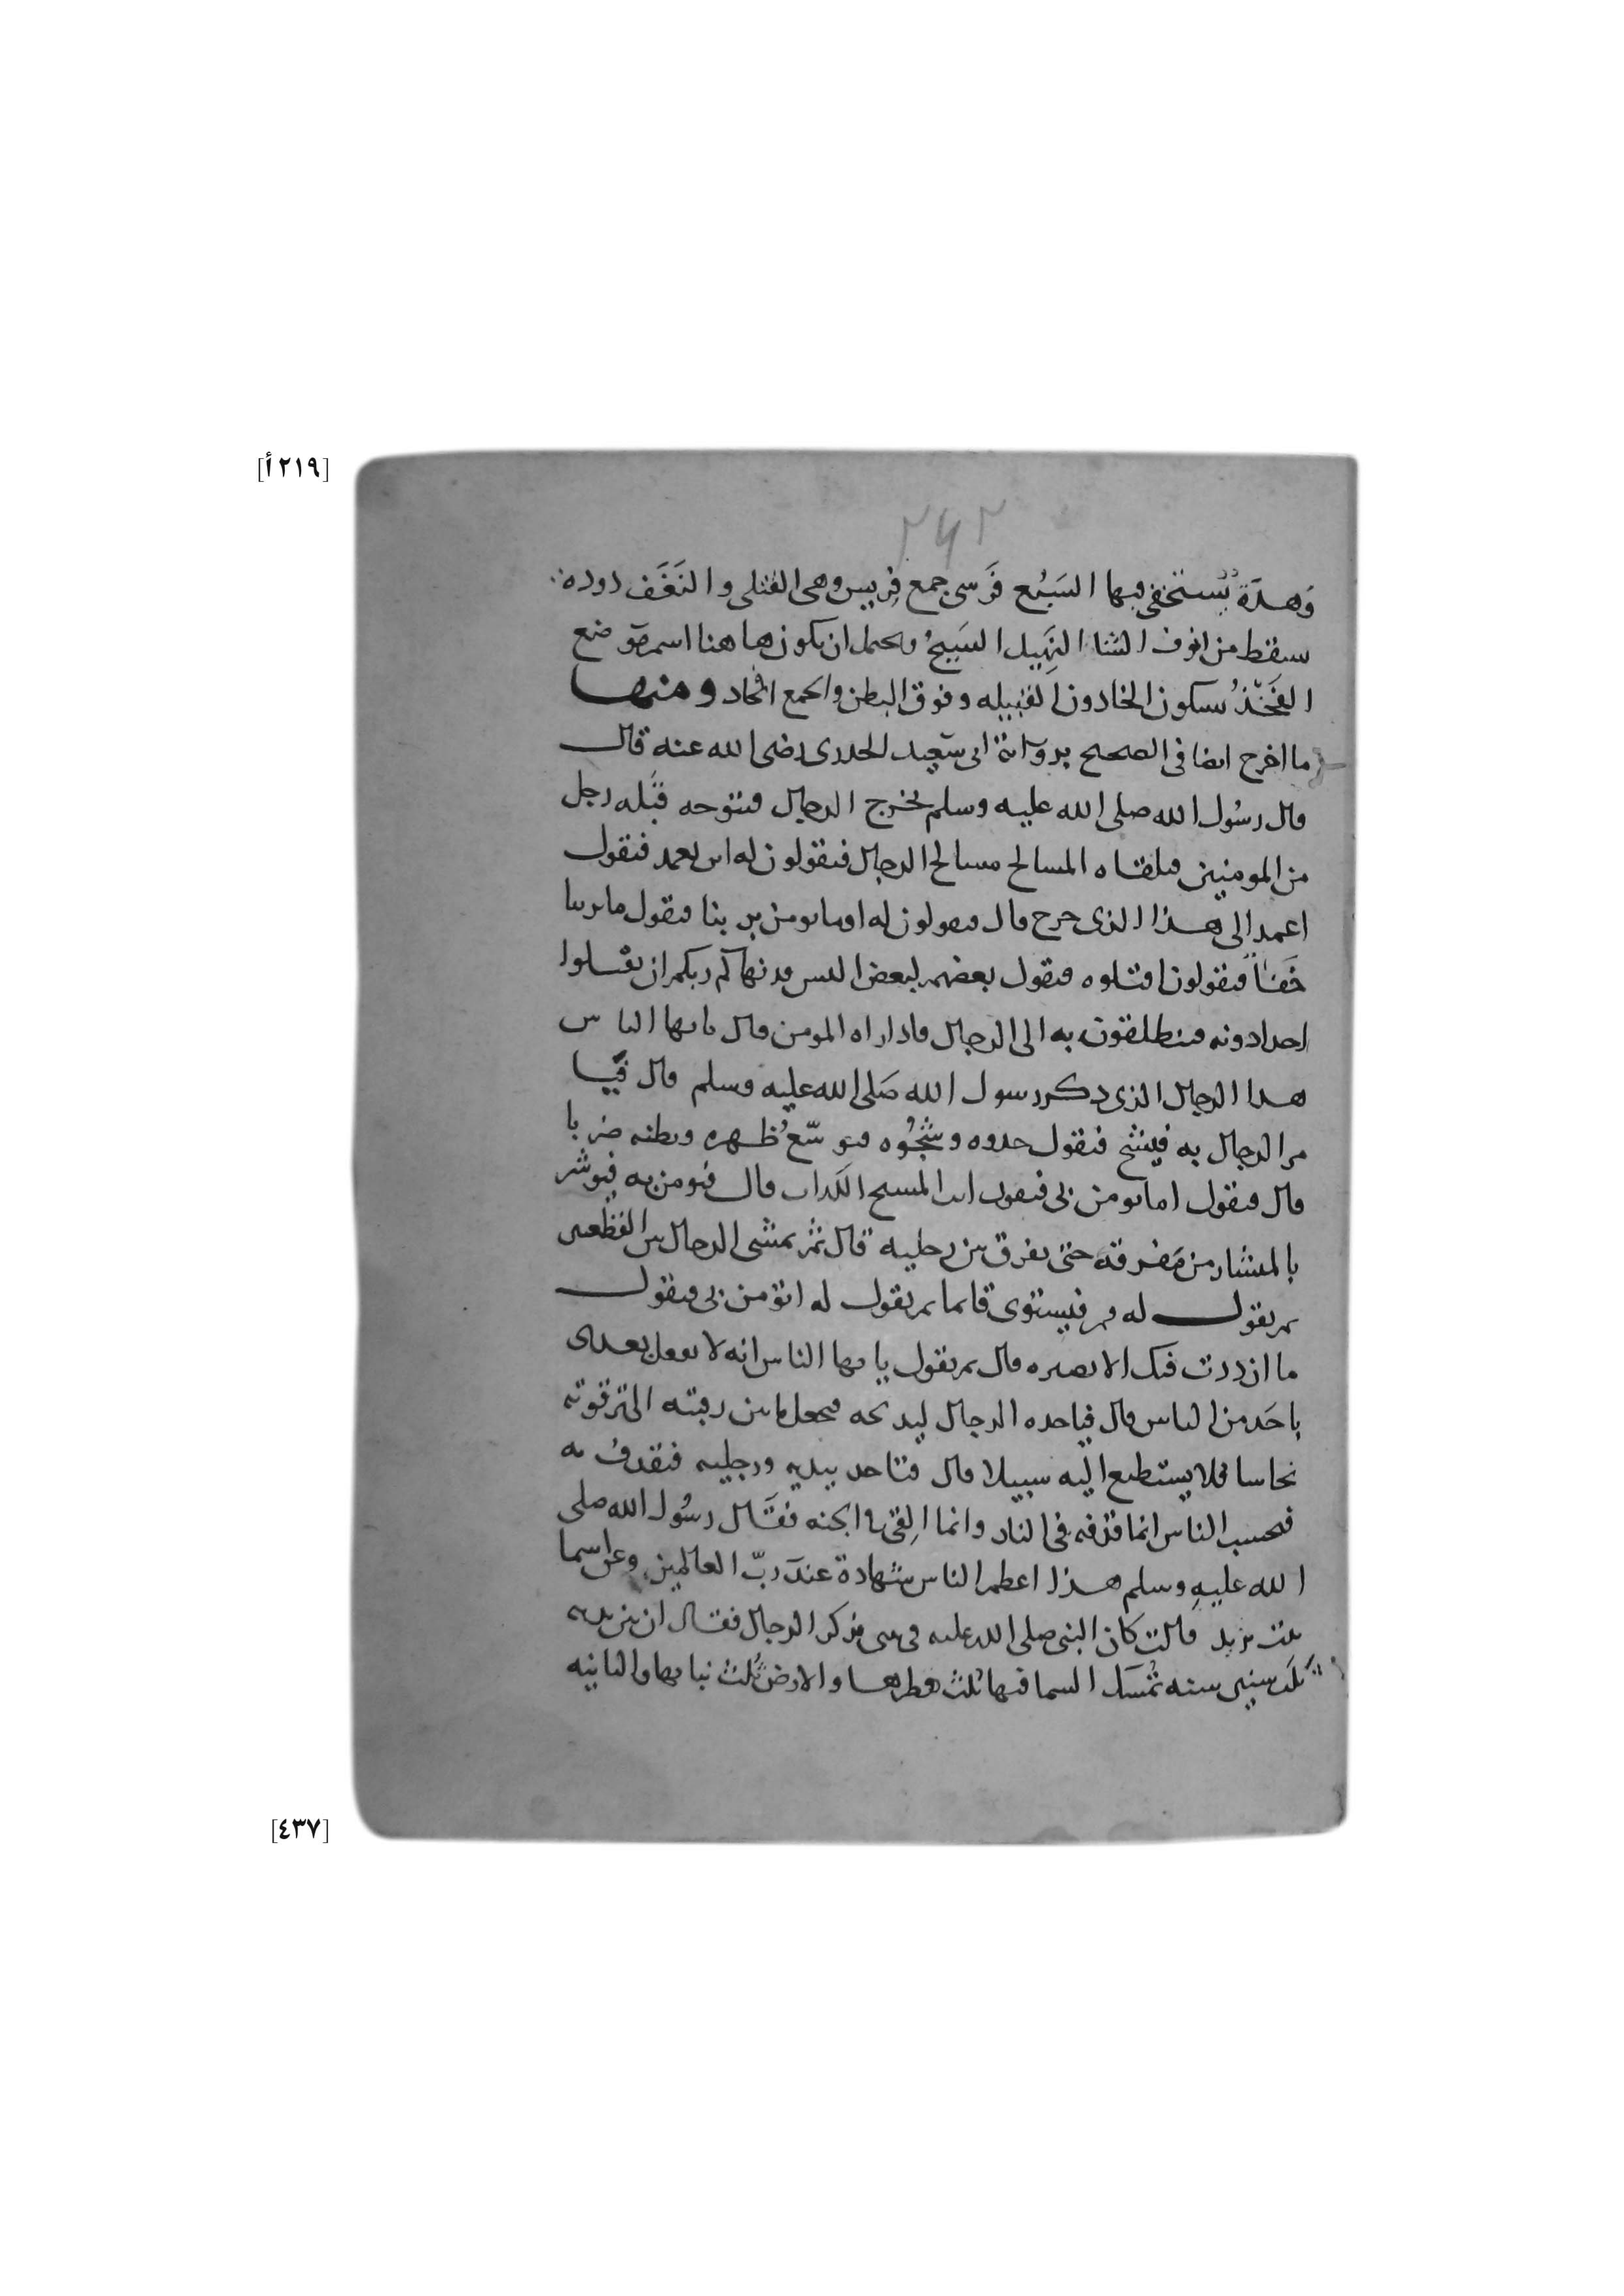 [٢١٩ أ]
٢٤٢
وَهدَة يُستخفى فيها السَبُع فَرسى جمع فريس وهى القتلى والنَغَف دوده
سقط من انوف الشا النَهِيل السَبِخُ ويحمل ان يكون هاهنا اسم موضع
الفَخْذُ بسكون الخا دون القبيله وفوق البطن والجمع افخاد ومنها
ما اخرج ايضا فى الصحيح برواية ابى سَعِيد الخدرى رضى الله عنه قال
قال رسُول الله صلى الله عليه وسلم يخرج الدجال فيتوجه قبَله رجل
من المومنين فيلقاه المسالح مسالح الدجال فيقولون له اين تعمد فيقول
اعمد الى هذا الذى خرج قال فيقولون له اوما تومن بربنا فيقول ما بربنا
خَفاً فيقولون اقتلوه فيقول بعضهم لبعض اليس قد نهاكم ربكم ان تقتلوا
احدا دونه فينطلقون به الى الدجال فاذا راه المومن قال يا يها الناس
هدا الدجال الذى ذكر رسول الله صَلى الله عليه وسلم قال
مر الدجال به فيشج فيقول خدوه وشجُوه فيوسّعُ ظهره وبطنه ضربا
قال فيقول اما تومن بى فيقول انت المسيح الكَداب قال فيومر به فيوشر
بالميشار من مَفرقه حتى يفرق بين رجليه قال ثم يمشى الدجال بين القطعتين
ثم يقول له قم فيستوى قايما ثم يقول له اتؤمن بى فيقول
ما ازددت فيك الا بصيره قال ثم يقول يا يها الناس انه لا يفعل بعدى
باحَد من الناس قال فياخده الدجال ليدبحه فيجعل ما بين رقبته الى ترقوته
نحاسا فلا يستطيع اليه سبيلا قال فياخد بيديه ورجليه فيقدفُ به
فيحسب الناس انما قذفه فى النار وانما اُلقِى فى الجنه فقَال رسُول الله صلى
الله عليهِ وسلم هذا اعظم الناس شهادة عندَ ربّ العالمين وعن اسما
بنت يزيد قالت كان النبى صلى الله عليه فى بيتى فذكر الدجال فقال ان بين يديه
ثلَث سنين سنه تُمسَك السما فيها ثلث قطرها والارض ثُلث نباتها والثانيه
[٤٣٧]